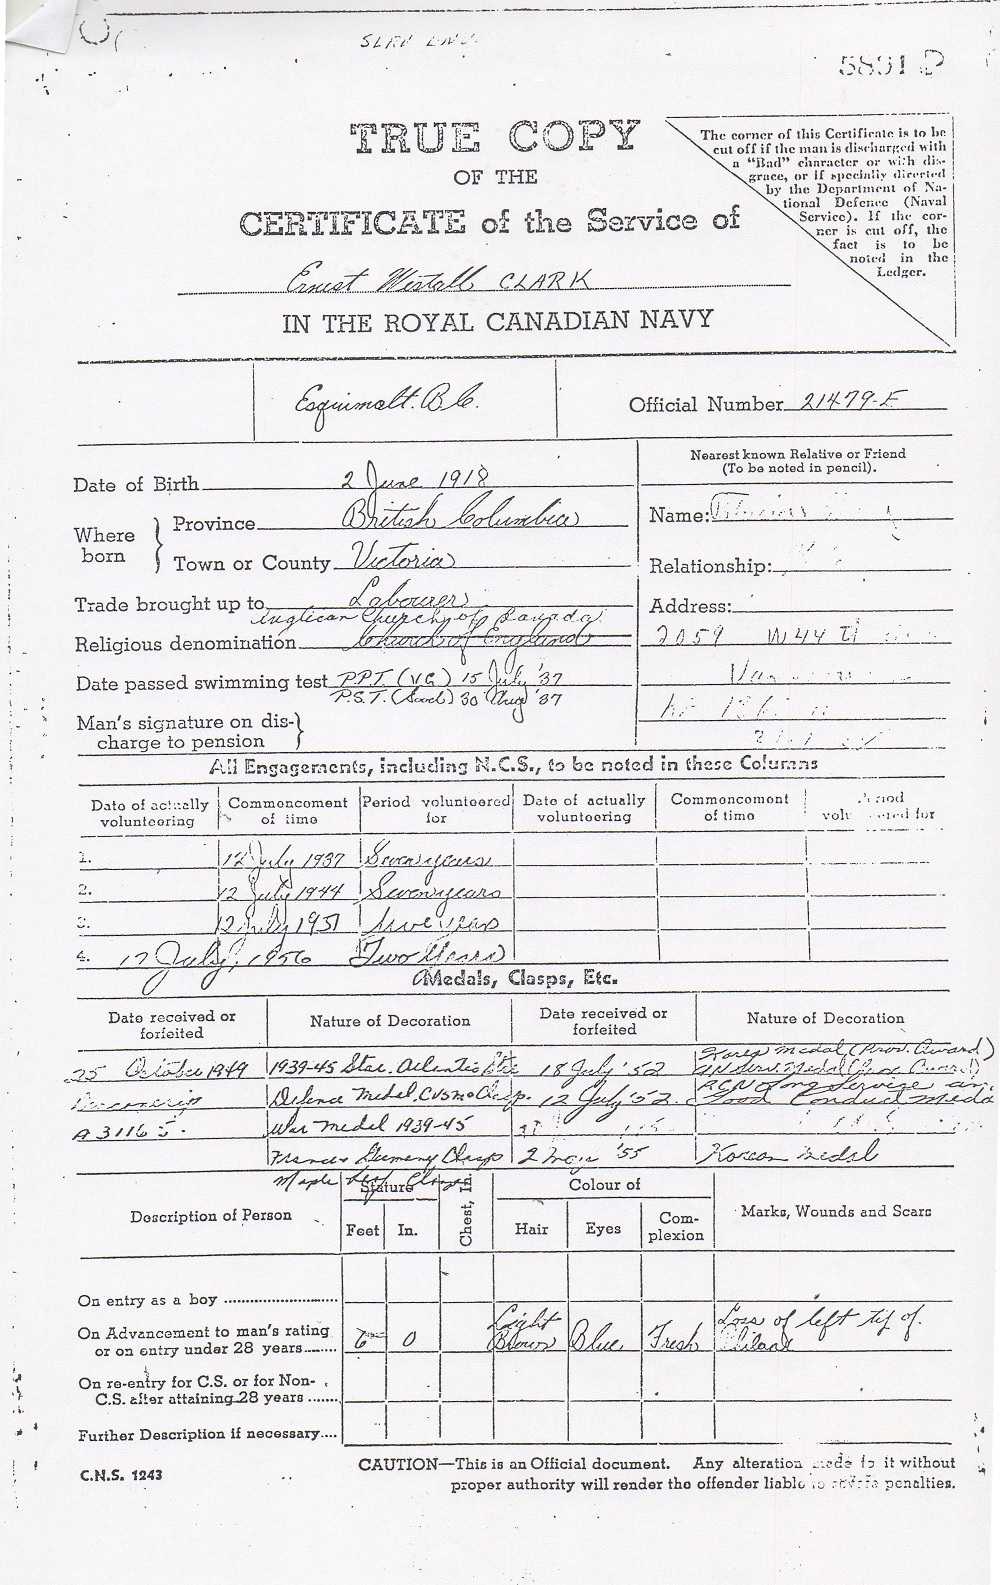 5831
TRUE COPY
OF THE
CERTIFICATE of the Service of
Ernest Westall CLARK
IN THE ROYAL CANADIAN NAVY
The corner of this Certificate is to be
cut off if the man is discharged with
a "Bad" character or with dis-
grace, or if specially directed
by the Department of Na-
tional Defence (Naval
Service). If the cor-
ner is cut off, the
fact is to be
noted in the
Ledger.
Esquimalt. B.C.
Official Number 21479-E
Date of Birth 2 June 1918
Where born
Province British Columbia
Town or County Victoria
Trade brought up to Labourer
Anglican Church of Canada
Religious denomination Church of England
Date passed swimming test P.P.T. (VG) 15 July '37
P.S.T. (Good) 30 Aug '37
Man's signature on dis-
charge to pension
Nearest known Relative or Friend
(To be noted in pencil).
Name:
Relationship:
Address:
2059 W 44
All Engagements, including N.C.S., to be noted in these Columns
Date of actually volunteering Commencement of time Period volunteered for Date of actually volunteering Commencement of time Period volunteered for
1. 12 July 1937 Seven years
2. 12 July 1944 Seven years
3. 12 July 1951 five years
4. 17 July, 1956 Two Years
Medals, Clasps, Etc.
Date received or forfeited Nature of Decoration Date received or forfeited Nature of Decoration
25 October 1949 1939-45 Star. Atlantic Star 18 July '52 Korea Medal (Prov. Award)
UN Serv. Medal (Prov. Award)
Defence Medal, CVSM & Clasp. 12 July '52. RCN Long Service and
Good Conduct Medal
A 3116 5. War Medal 1939-45
France & Germany Clasp 2 '55 Korean Medal
Maple Leaf
Description of Person Stature Feet In. Chest, In. Colour of Hair Eyes Com-plexion Marks, Wounds and Scars
On entry as a boy
On Advancement to man's rating
or on entry under 28 years 6 0 Light Brown Blue Fresh Loss of left tip of
On re-entry for C.S. or for Non-
C.S. after attaining 28 years
Further Description if necessary
C.N.S. 1243
CAUTION—This is an Official document. Any alteration made to it without
proper authority will render the offender liable to severe penalties.